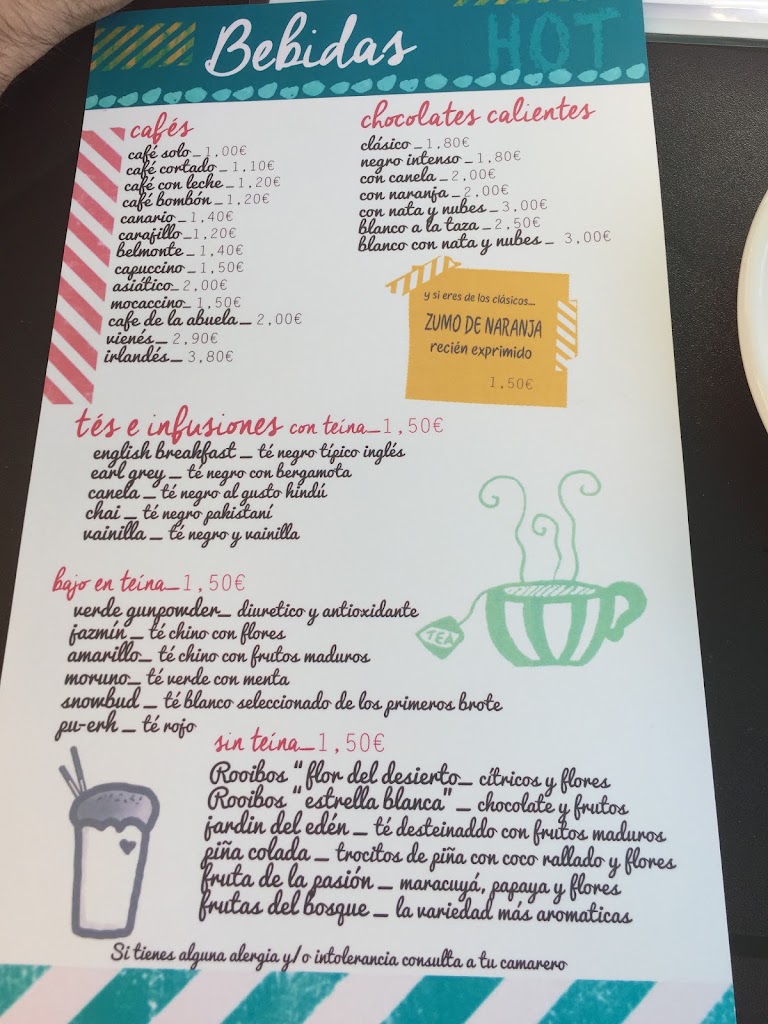 Bebidas
HOT
cafés
café solo_1,00€
café cortado_1,10€
café con leche_1,20€
café bombón_1,20€
canario_1,40€
carajillo_1,20€
belmonte_1,40€
capuccino_1,50€
asiático_2,00€
mocaccino_1,50€
cafe de la abuela_2,00€
vienés_2,90€
irlandés_3,80€
chocolates calientes
clásico_1,80€
negro intenso_1,80€
con canela_2,00€
con naranja_2,00€
con nata y nubes_3,00€
blanco a la taza_2,50€
blanco con nata y nubes_3,00€
y si eres de los clásicos...
ZUMO DE NARANJA
recién exprimido
1,50€
tés e infusiones con teína_1,50€
english breakfast_té negro típico inglés
earl grey_té negro con bergamota
canela_té negro al gusto hindú
chai_té negro pakistaní
vainilla_té negro y vainilla
bajo en teína_1,50€
verde gunpowder_diuretico y antioxidante
jazmín_té chino con flores
amarillo_té chino con frutos maduros
moruno_té verde con menta
snowbud_té blanco seleccionado de los primeros brote
pu-erh_té rojo
TEA
sin teína_1,50€
Rooibos "flor del desierto_cítricos y flores
Rooibos "estrella blanca"_chocolate y frutos
jardin del edén_té desteinaddo con frutos maduros
piña colada_trocitos de piña con coco rallado y flores
fruta de la pasión_maracuyá, papaya y flores
frutas del bosque_la variedad más aromaticas
Si tienes alguna alergia y/o intolerancia consulta a tu camarero